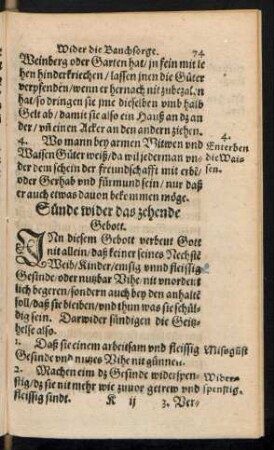 Wider die Bauchsorge. 74
Weinberg oder Garten hat/ jn fein mit le
hen hinderkriechen/ lassen jnen die Güter
verpfenden/ wenn er hernach nit zubezalen
hat/ so dringen sie jme dieselben vmb halb
Gelt ab/ damit sie also ein Hauß an dz an
der/ vñ einen Acker an den andern ziehen.
4. Wo mann bey armen Witwen vnd
Waisen Güter weiß/ da wil jederman vn-
der dem schein der freundschafft mit erbē/
oder Gerhab vnd fürmund sein/ nur daß
er auch etwas dauon bekommen möge.
4.
Enterben
die Wai-
sen.
Sünde wider das zehende
Gebott.
INn diesem Gebott verbeut Gott
nit allein/ daß keiner seines Nechstē
Weib/ Kinder/ emsig vnnd fleissig
Gesinde/ oder nutzbar Vihe nit vnordent
lich begeren/ sondern auch bey den anhaltē
soll/ daß sie bleiben/ vnd thun was sie schül-
dig sein. Darwider sündigen die Geitz-
helse also.
1. Daß sie einem arbeitsam vnd fleissig
Gesinde vnd nutzes Vihe nit günnen.
Mißgüst
2. Machen eim dz Gesinde widerspen-
stig/ dz sie nit mehr wie zuuor getrew vnd
fleissig sindt.
Wider-
spenstig.
K ij 3. Ver-